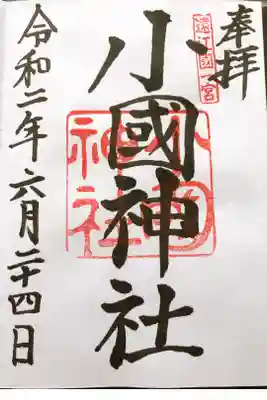 奉拝
遠江國一宮
小國神社
小國神社
令和二年六月二十四日